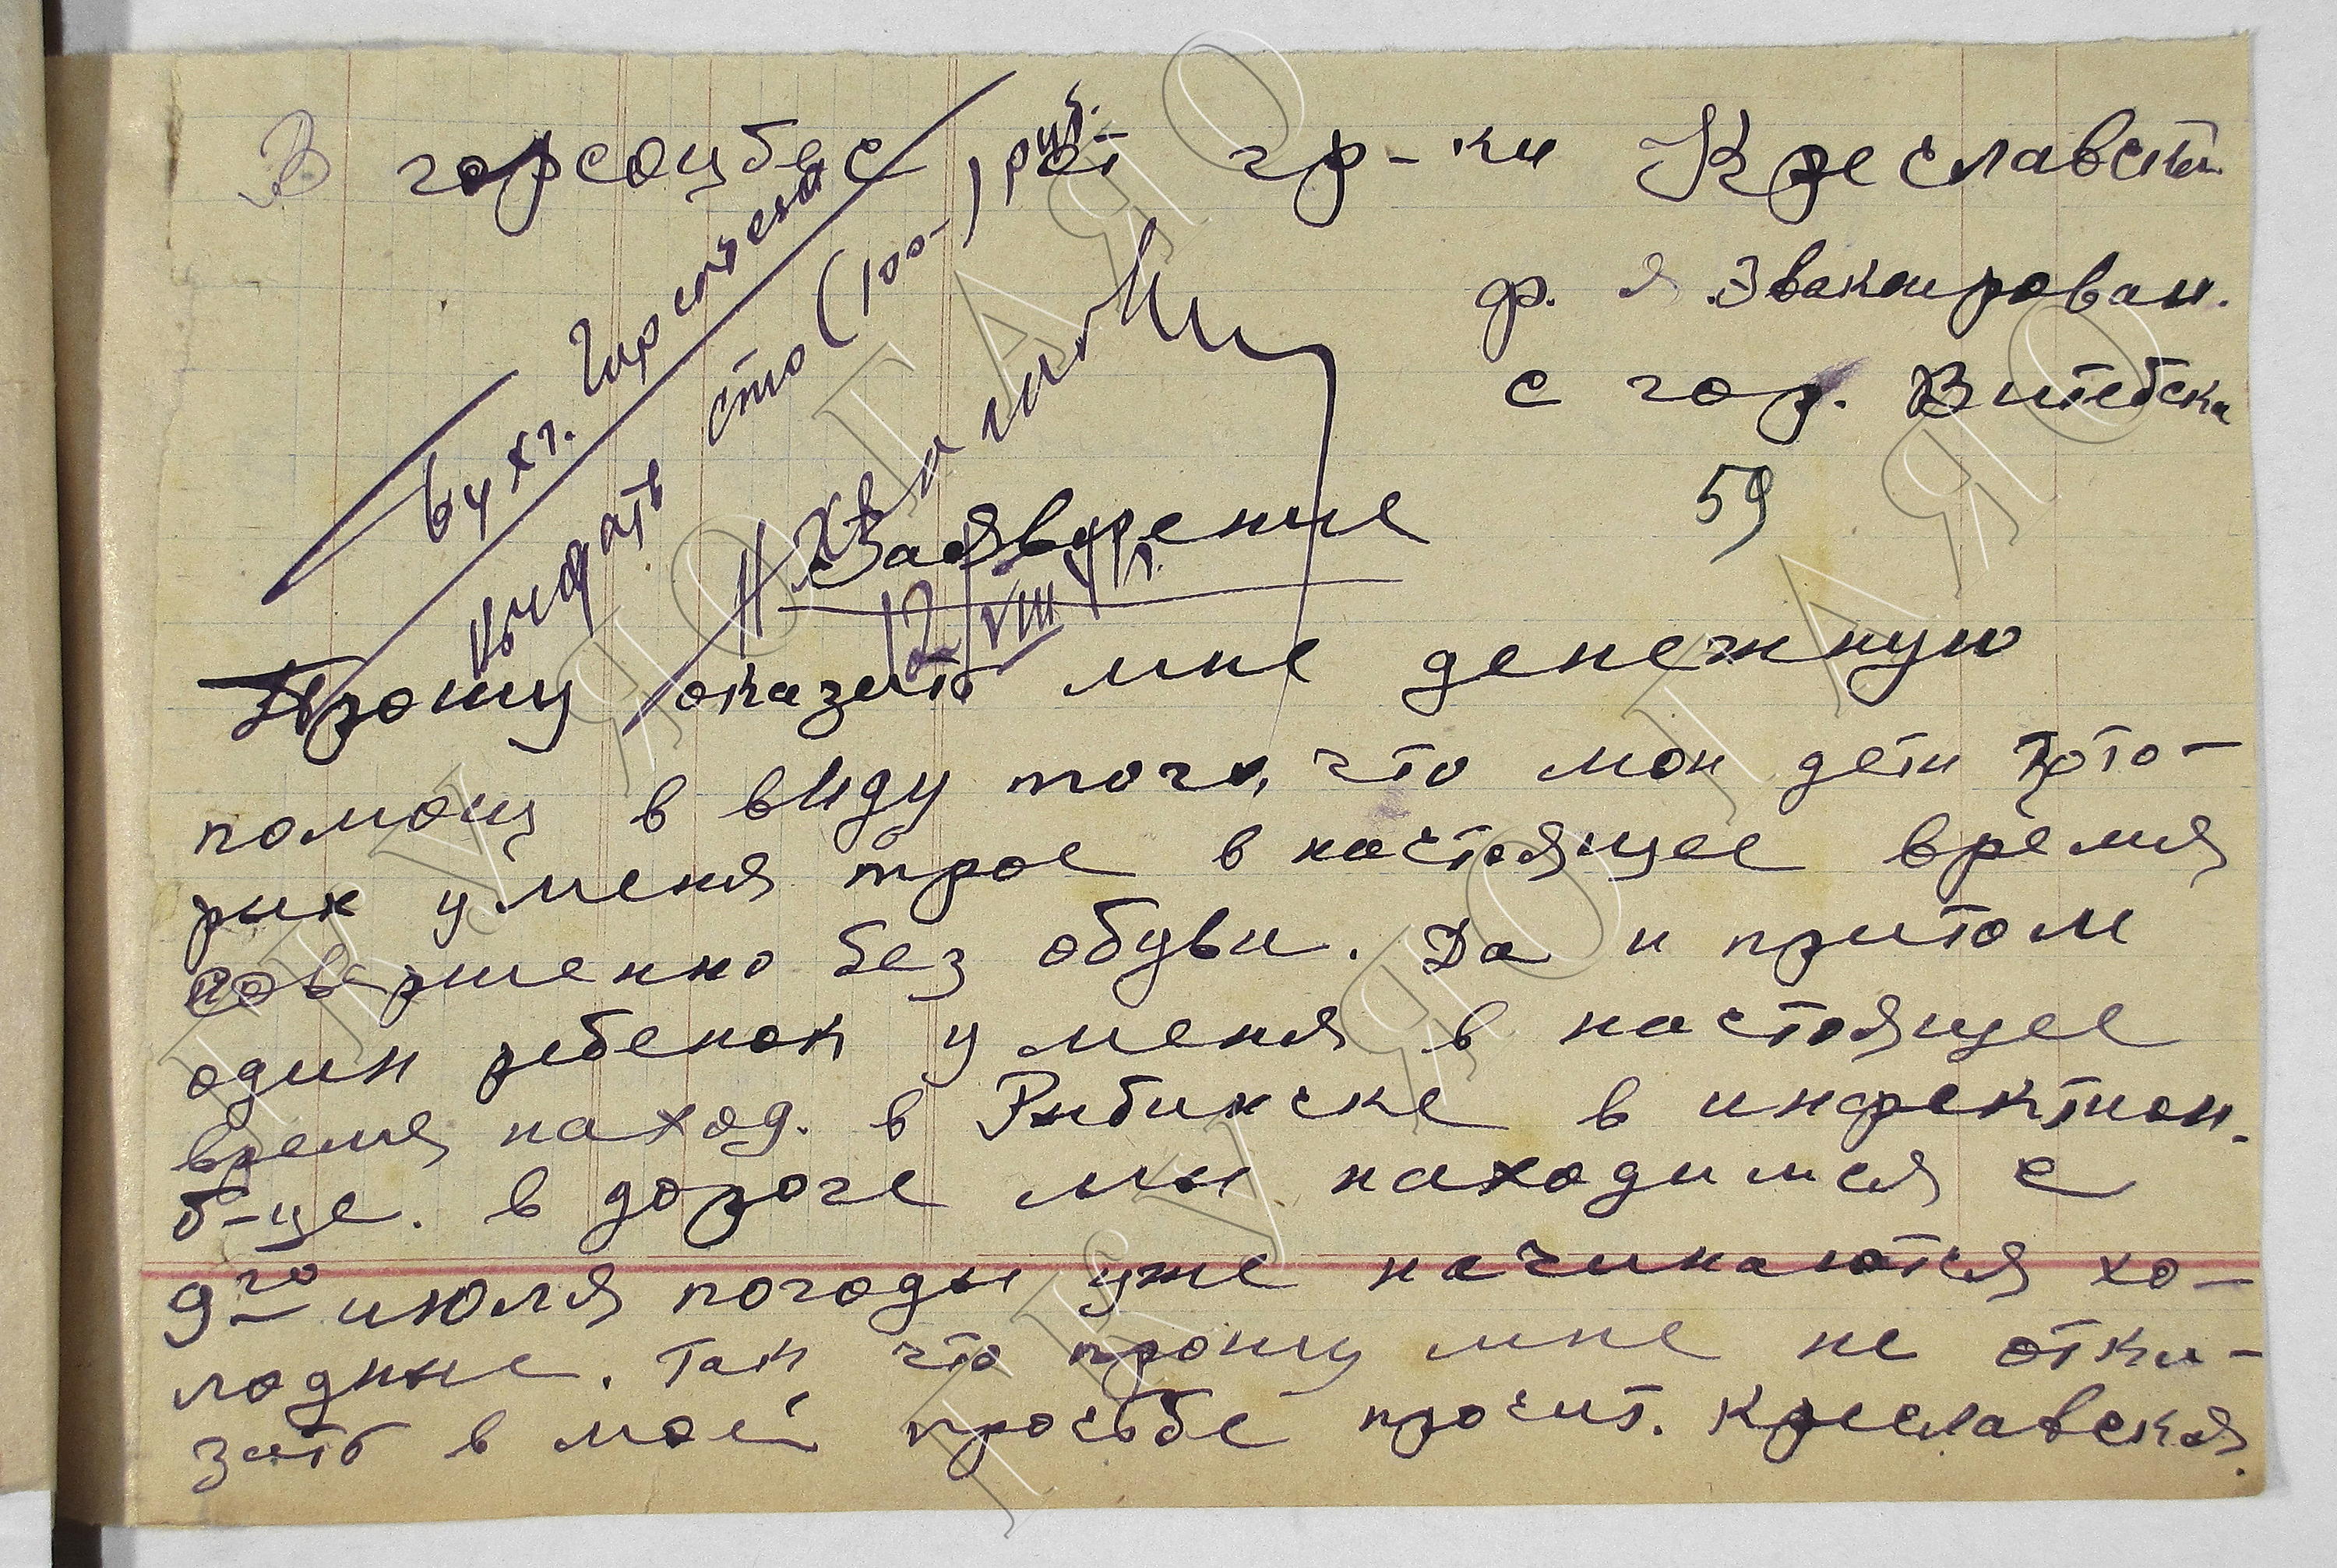 В горсоцбес от гр-ки Креславской
ф. я эвакуирован.
с гор. Витебска
59
Бухг.
Выдать сто (100-) руб.
12/VIII 41 г.
Заявление
Прошу оказать мне денежную
помощ в виду того, что мои дети кото-
рих у меня трое в настоящее время
совершенно без обуви. Да и притом
один ребенок у меня в настоящее
время наход. в Рибинске в инфектион.
б-це. в дороге мы находимся с
9го июля погоды уже начинаются хо-
лодные. Так что прошу мне не отка-
зать в моей просьбе просит. Креславская.
ГКУ ЯО ГАЯО
ГКУ ЯО ГАЯО